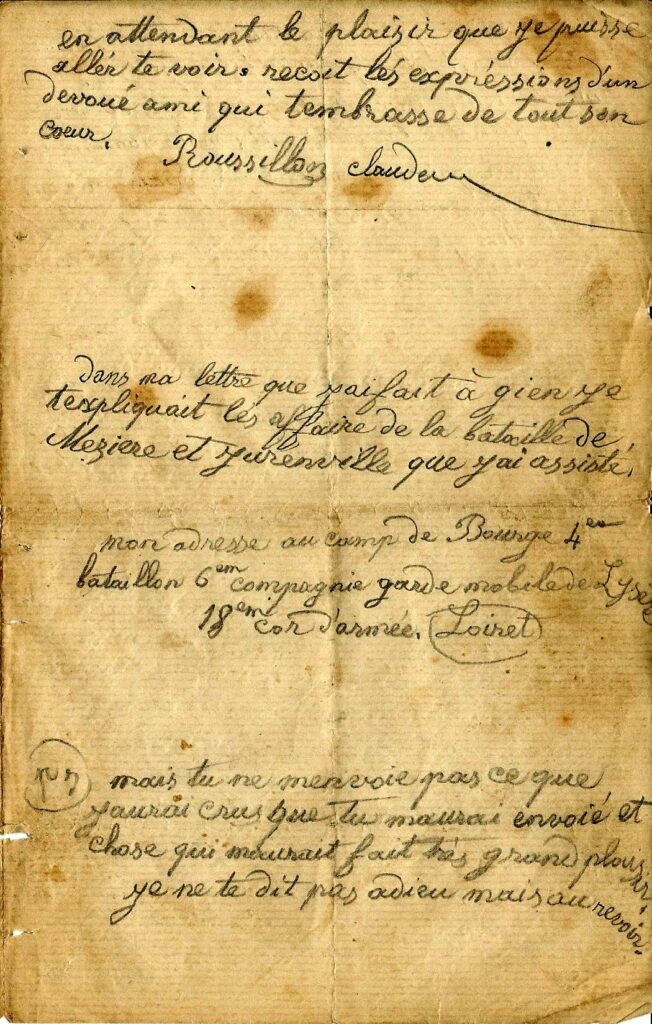 en attendant le plaisir que je puisse
allér te voir. recoit lés expréssions d'un
devoué ami qui tembrasse de tout son
coeur.
Roussillon claude
dans ma lettre que jai fait à gien je
texpliquait lés affaire de la bataille de
Meziere et jurenvilla que j'ai assisté.
mon adresse au camp de Bourge 4em
bataillon 6em compagnie garde mobile de Lysére
18em cor d'armée. Loiret
mais tu ne menvoie pas ce que
jaurai crus que tu maurai envoié et
chose qui maurait fait trés grand plaisir.
je ne te dit pas adieu mais au revoir.